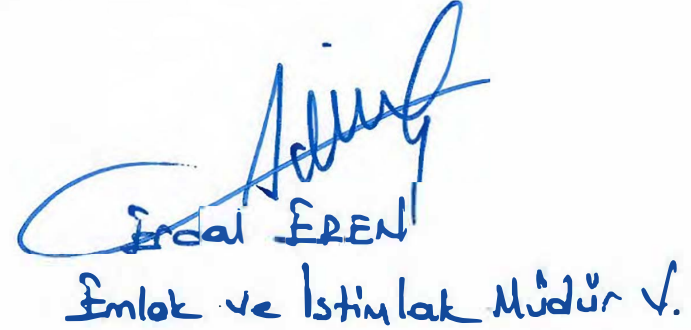 Erdal EREN
Emlak ve İstimlak Müdür V.